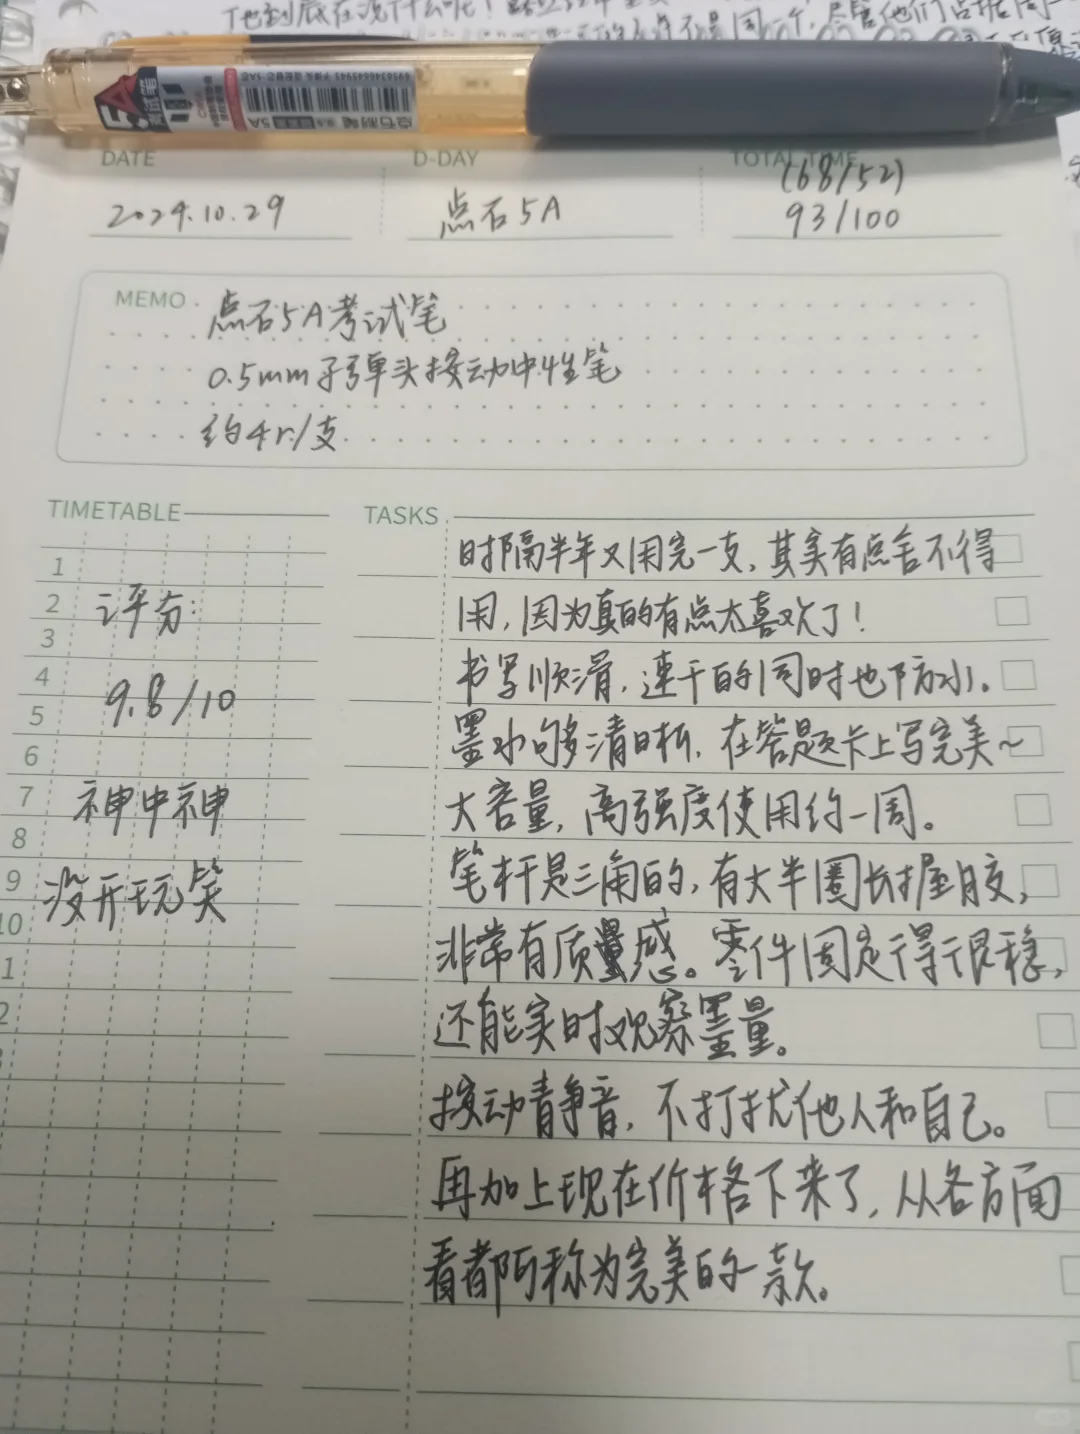 他到底在说什么呢！
不是同一个，尽管他们占据同一
5A
考试笔
点石制笔
5A
6956346645945
DATE
D-DAY
TOTAL TIME
(68/52)
2024.10.29
点石5A
93/100
MEMO
点石5A考试笔
0.5mm子弹头按动中性笔
约4r/支
TIMETABLE
TASKS
1
2
3
4
5
6
7
8
9
10
1
2
评分:
9.8/10
神中神
没开玩笑
时隔半年又用完一支，其实有点舍不得
用，因为真的有点太喜欢了！
书写顺滑，速干的同时也防水。
墨水够清晰，在答题卡上写完美~
大容量，高强度使用约一周。
笔杆是三角的，有大半圈长握胶，
非常有质量感。零件固定得很稳，
还能实时观察墨量。
按动静音，不打扰他人和自己。
再加上现在价格下来了，从各方面
看都可称为完美的一款。